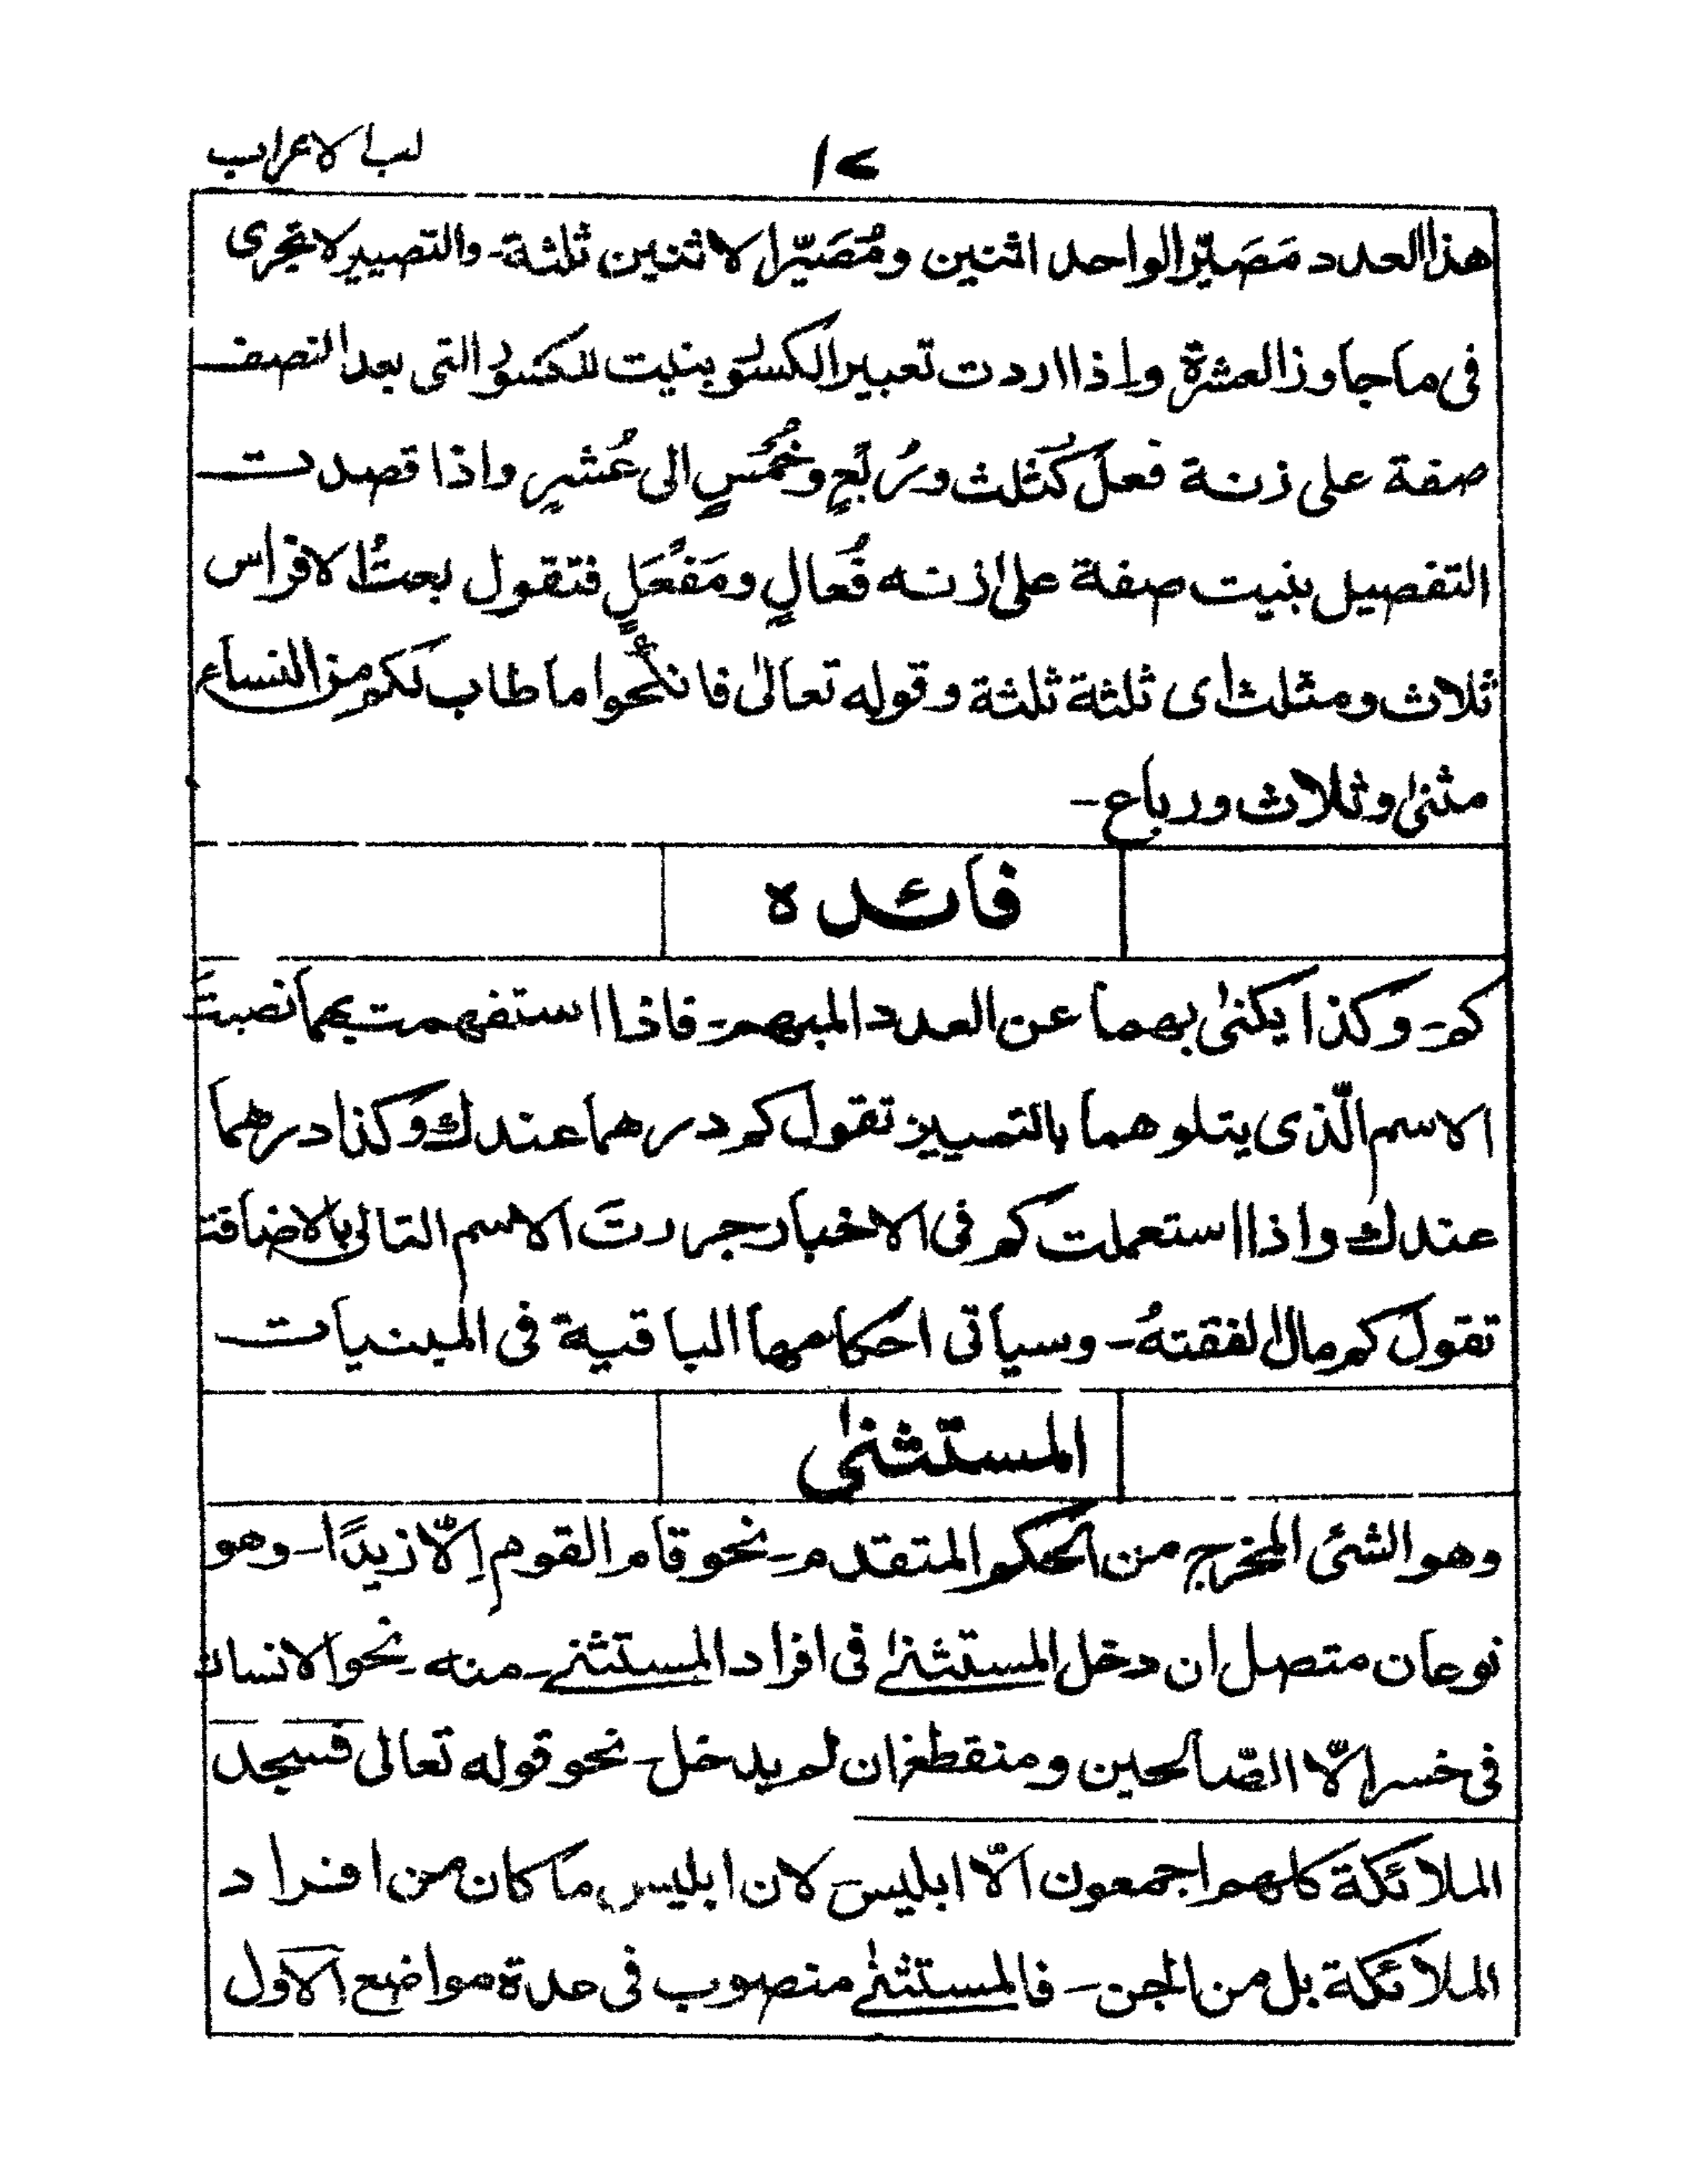 لب الاعراب
هذا العدد مَصَيّر الواحد اثنين ومُصَيّر الاثنين ثلثة۔ والتصيير لا تجرى
فى ما جاوز العشرة واذا اردت تعبير الكسور بنيت للكسور التى بعد النصف
صفة على زنة فعل كثلث ورُبُعٍ وخُمُسٍ الى عُشرٍ واذا قصدت
التفصيل بنيت صفة على زنه فُعالٍ ومَفعَلٍ فتقول بعتُ الافراس
ثلاث ومثلث اى ثلثة ثلثة وقوله تعالىٰ فانكحوا ما طاب لكم من النساء
مثنىٰ وثلاث ورباع۔
فائده
كم۔ وكذا يكنىٰ بهما عن العدد المبهم۔ فاذا استفهمت بهما نصبتَ
الاسم الّذى يتلوهما بالتمييز تقول كم درهما عندك وكذا درهما
عندك واذا استعملت كم فى الاخبار جررتَ الاسم التالى بالاضافة
تقول كم مال انفقتهُ۔ وسياتى احكامها الباقية فى المبنيات
المستثنىٰ
وهو الشئ المخرج من الحكم المتقدم۔ نحو قام القوم اِلّا زيدًا۔ وهو
نوعان متصل ان دخل المستثنىٰ فى افراد المستثنى۔ منه۔ نحو الانسان
فى خسر الّا الصّالحين ومنقطع ان لم يدخل۔ نحو قوله تعالى فسجد
الملائكة كلهم اجمعون الّا ابليس۔ لان ابليس ما كان من افراد
الملائكة بل من الجن۔ فالمستثنىٰ منصوب فى عدة مواضع الاول